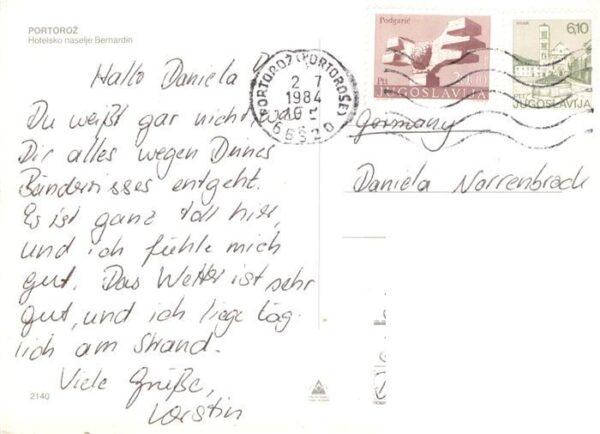 PORTOROŽ
Hotelsko naselje Bernardin
Hallo Daniela
Du weißt gar nicht was
Dir alles wegen Deines
Bänderrisses entgeht.
Es ist ganz toll hier,
und ich fühle mich
gut. Das Wetter ist sehr
gut, und ich liege täg-
lich am Strand.
Viele Grüße,
Kerstin
2140
PORTOROŽ (PORTOROSE)
2 7
1984
66320
Podgarić
Ptt
JUGOSLAVIJA
6,10
JUGOSLAVIJA
Germany
Daniela Norrenbrock